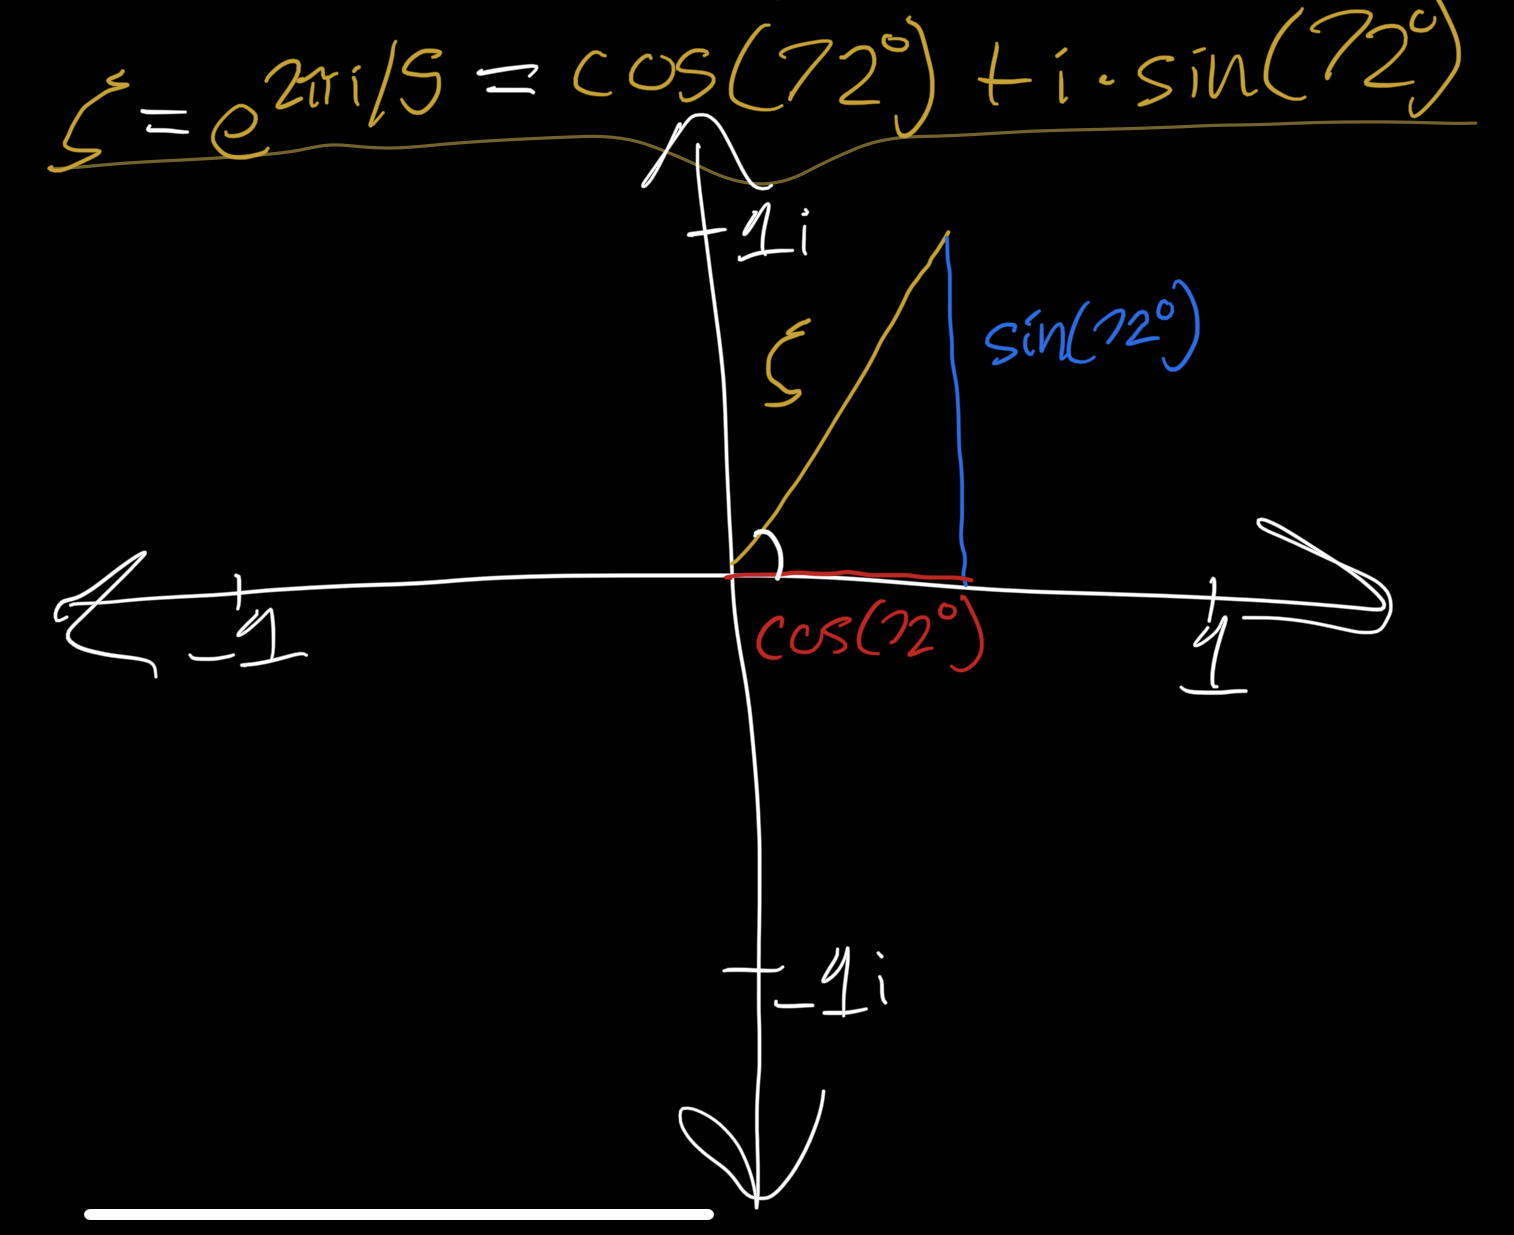 ζ = e^2πi/5 = cos(72°) + i · sin(72°)
1i
ζ
sin(72°)
-1
cos(72°)
1
-1i